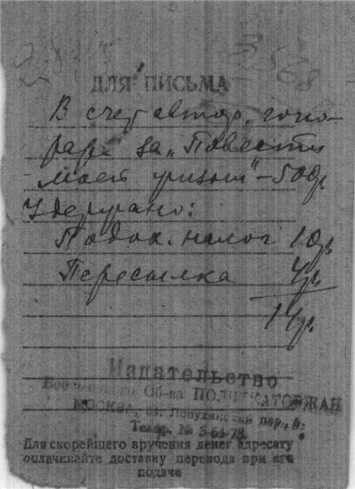 ДЛЯ ПИСЬМА
В счет автор. гоно-
рара за „Повести
моей жизни" – 50 др
Удержано:
Подох. налог 10 р
Пересылка 4 р.
14 р.
Издательство
Об-ва ПОЛИТКАТОРЖАН
МОСКВА, 34, Лопухинский пер., 5.
Телеф. № 3-64-73.
Для скорейшего вручения денег адресату
оплачивайте доставку перевода при его
подаче